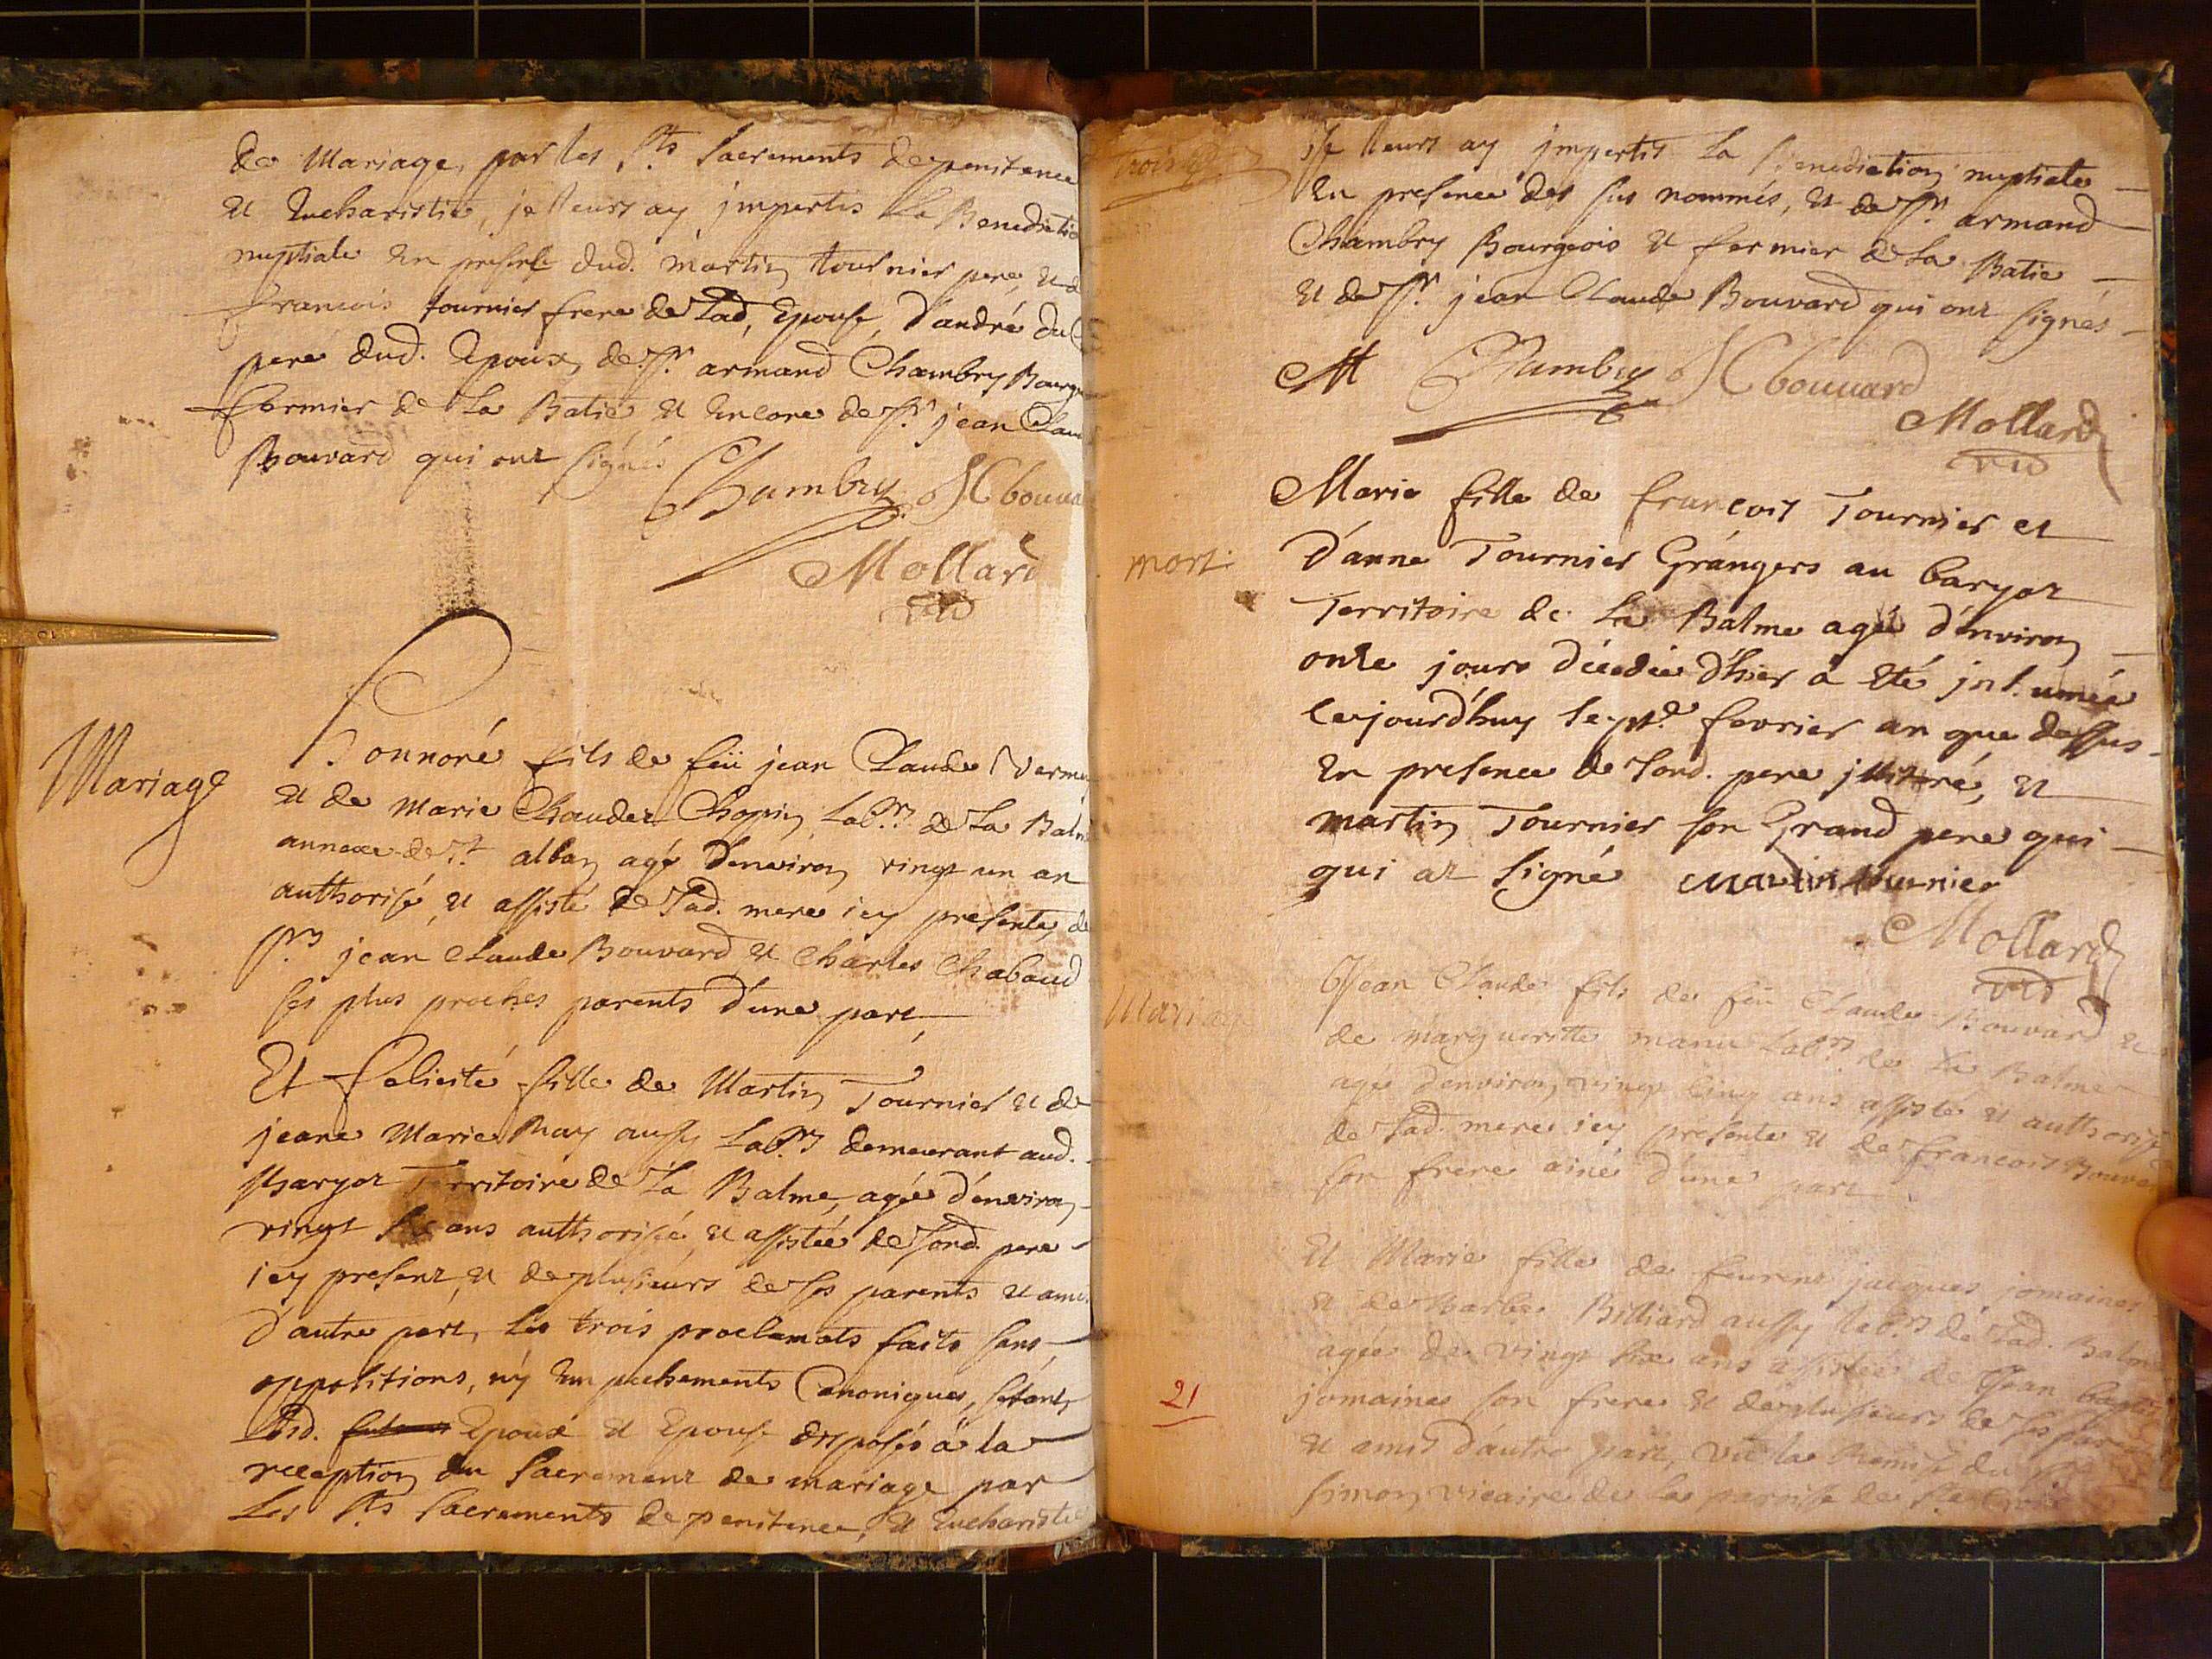 de Mariage, par les Sts Sacrements de penitence
et Eucharistie, je leurs ay impertis La Benedictio
nuptiale en presence dud. martin tournier pere, et d
francois tournier frere de Lad, Epouse, d'andré du
pere dud. Epoux, de Sr. armand Chambry Bourg
fermier de La Batie, et Encore de Sr. jean Clau
Bouvard qui ont signés
Chambry JCbouva
Mollard
vic
Mariage
honnoré fils de feü jean Claude Verme
et de Marie Chaudet Chopin, Labrs. de La Balm
annexe de St. alban agé d'environ vingt un an
authorisé, et assisté de Sad. mere icy presente, de
Srs jean Claude Bouvard, et Charles Chabaud
ses plus proches parents d'une part,
Et felicité fille de Martin Tournier et de
jeane Marie Ray aussy Labrs demeurant aud.
Baryot Territoire de La Balme, agée d'environ
vingt six ans authorisée, et assistée de Sond. pere
icy present, et de plusieurs de ses parents et amis
d'autre part, Les trois proclamats faits sans
oppositions, ny Empechements Canoniques, s'etants
Lesd. Epoux et Epouse disposés à la
reception du Sacrement de mariage par
Les Sts Sacrements de penitence, et Eucharistie
je leurs ay impertis La Benediction nuptiale
En presence des sus nommés, et de Sr. armand
Chambry Bourgeois et fermier de La Batie
et de Sr. jean Claude Bouvard qui ont signés
Chambry JCbouvard
Mollard
vic
mort.
Marie fille de francois Tournier et
d'anne Tournier Grangers au baryot
Territoire de La Balme agée d'environ
onze jours décedée d'hier a eté inhumée
cejourd'huy sept.e fevrier an que dessus
En presence de Sond. pere illitré, et
martin Tournier son Grand pere qui
qui at signé martin tournier
Mollard
vic
Mariage
Jean Claude fils de feü Claude Bouvard et
de margueritte manu Labrs. de La Balme
agé d'environ vingt cinq ans assisté et authorisé
de Sad. mere icy présente et de francois Bouvar
son frere ainé d'une part
Et Marie fille de feurent jacques jomaines
et de Barbe Billiard aussy labrs de Lad. Balme
agée de vingt six ans assistée de Jean baptis
jomaines son frere et de plusieurs de ses par
21
et amis d'autre part, vû la Remise du
simon vicaire de la paroisse de Ste